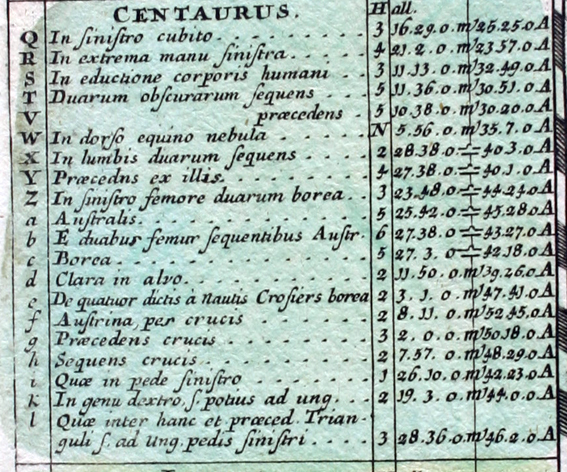 CENTAURUS. Hall.
Q In siniſtro cubito 3 16.29.0.♏ 25.25.0.A
R In extrema manu siniſtra 4 21.2.0.♏ 23.57.0.A
S In eductione corporis humani 3 11.13.0.♏ 32.49.0.A
T Duarum obſcurarum ſequens 5 11.36.0.♏ 30.51.0.A
V præcedens 5 10.38.0.♏ 30.20.0.A
W In dorſo equino nebula N 5.56.0.♏ 35.7.0.A
X In lumbis duarum ſequens 2 28.38.0.♎ 40.3.0.A
Y Præcedns ex illis 4 27.38.0.♎ 40.1.0.A
Z In ſiniſtro femore duarum borea 3 23.48.0.♎ 44.24.0.A
a Auſtralis 5 25.42.0.♎ 45.28.0.A
b E duabus femur ſequentibus Auſtr. 6 27.38.0.♎ 43.27.0.A
c Borea 5 27.3.0.♎ 42.18.0.A
d Clara in alvo 2 11.50.0.♏ 39.26.0.A
e De quatuor dictis á nautis Croſiers borea 2 3.1.0.♏ 47.41.0.A
f Auſtrina, pes crucis 2 8.11.0.♏ 52.45.0.A
g Præcedens crucis 3 2.0.0.♏ 50.18.0.A
h Sequens crucis 2 7.57.0.♏ 48.29.0.A
i Quæ in pede ſiniſtro 1 26.10.0.♏ 42.23.0.A
k In genu dextro, ſ. potius ad ung. 2 19.3.0.♏ 44.0.0.A
l Quæ inter hanc et præced. Trian-
guli ſ. ad Ung. pedis ſiniſtri 3 28.36.0.♏ 46.2.0.A